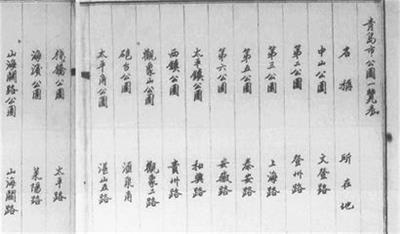 青島市公園一覽表
名稱 所在地
中山公園 文登路
第二公園 登州路
第三公園 上海路
第五公園 泰安路
第六公園 安徽路
太平鎮公園 和興路
西鎮公園 貴州路
觀象山公園 觀象二路
砲台公園 滙泉角
太平角公園 湛山五路
棧橋公園 太平路
海濱公園 萊陽路
山海關路公園 山海關路